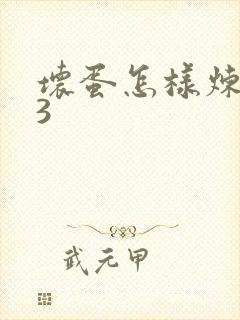 壞蛋怎樣煉
3
武元甲